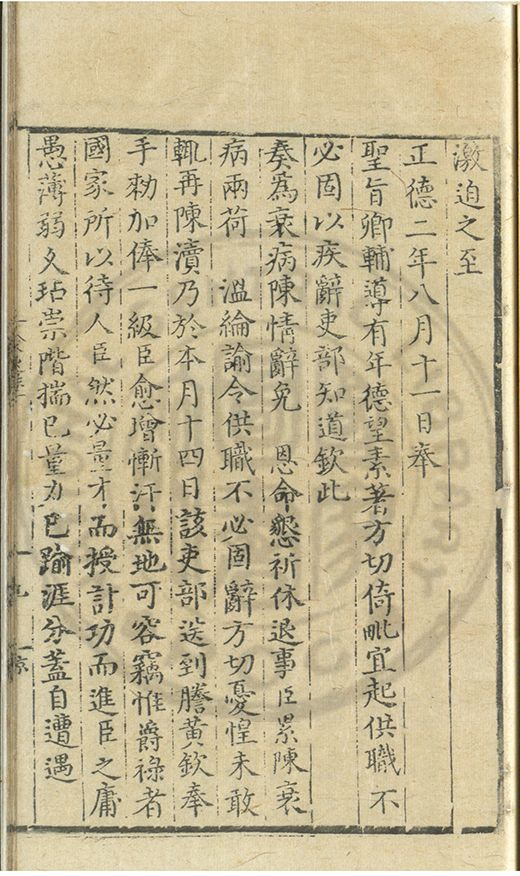 激迫之至
正德二年八月十一日奉
聖旨卿輔導有年德望素著方切倚毗宜起供職不
必固以疾辭吏部知道欽此
奏為衰病陳情辭免　恩命懇祈休退事臣累陳衰
病兩荷　溫綸諭令供職不必固辭方切憂惶未敢
輒再陳瀆乃於本月十四日該吏部送到謄黃欽奉
手勑加俸一級臣愈增慚汗無地可容竊惟爵祿者
國家所以待人臣然必量才而授計功而進臣之庸
愚薄弱久玷崇階揣已量力已踰涯分蓋自遭遇